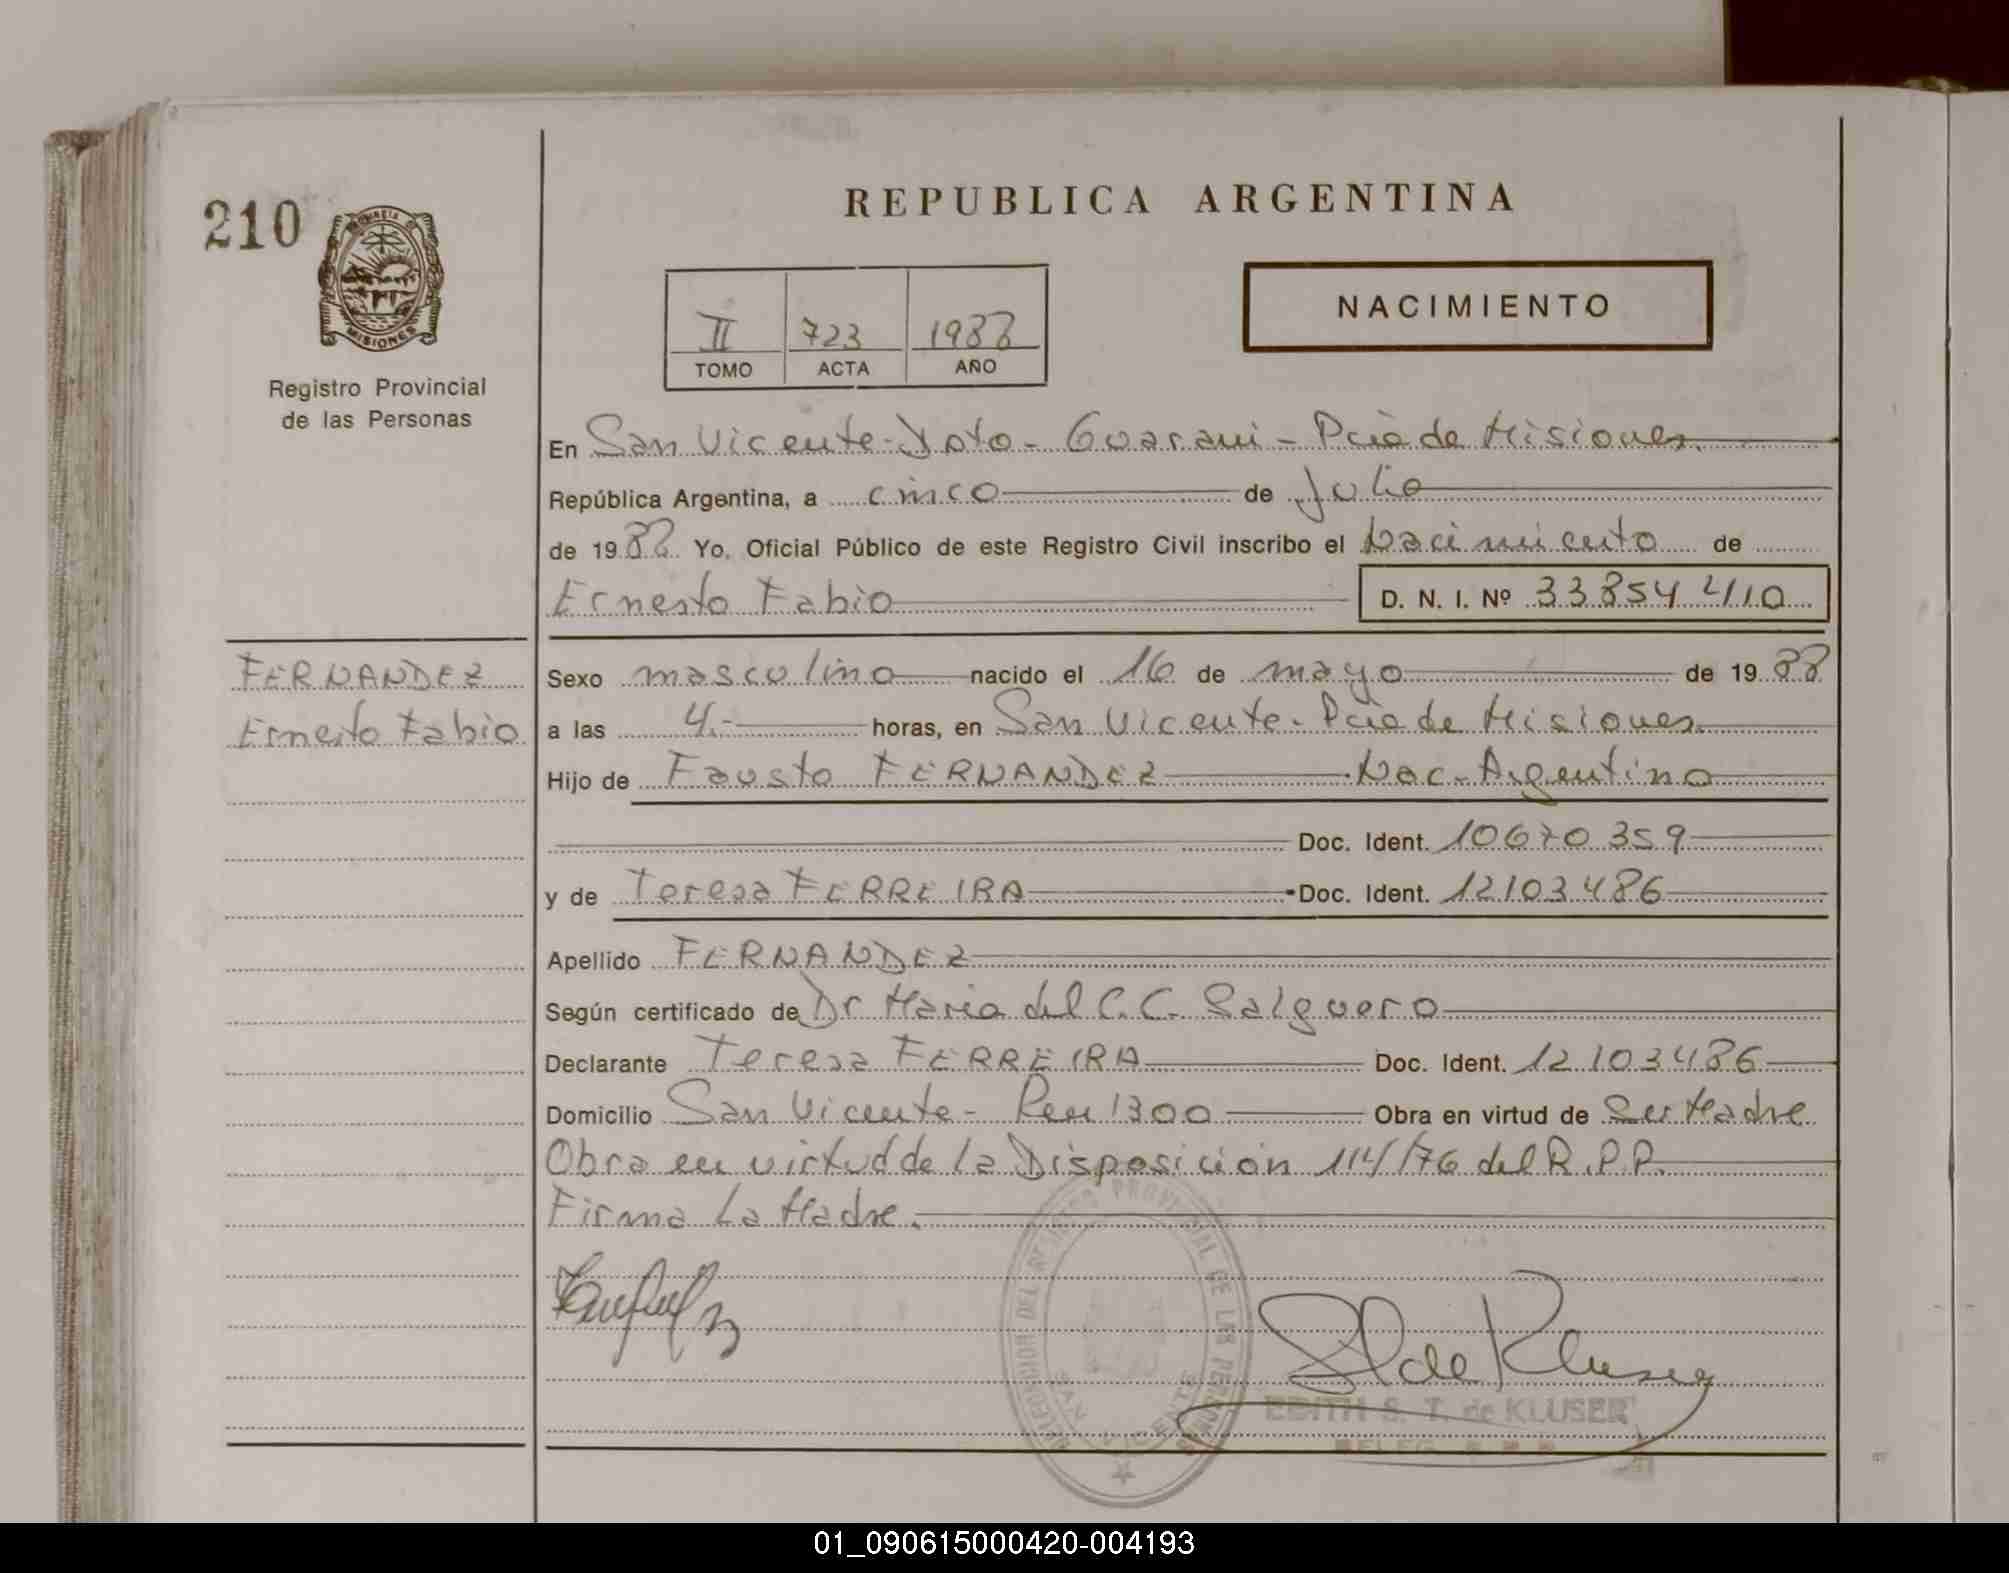 210
PROVINCIA
MISIONES
Registro Provincial
de las Personas
REPUBLICA ARGENTINA
II 723 1988
TOMO ACTA AÑO
NACIMIENTO
En San Vicente-Dpto-Guarani-Pcia de Misiones.
República Argentina, a cinco de Julio
de 1988. Yo, Oficial Público de este Registro Civil inscribo el Nacimiento de
Ernesto Fabio D. N. I. Nº 33854410
FERNANDEZ
Ernesto Fabio
Sexo masculino nacido el 16 de mayo de 1988
a las 4.- horas, en San Vicente-Pcia de Misiones.
Hijo de Fausto FERNANDEZ Nac-Argentino
Doc. Ident. 10670359
y de Teresa FERREIRA Doc. Ident. 12103486
Apellido FERNANDEZ
Según certificado de Dr Maria del C.C. Salguero
Declarante Teresa FERREIRA Doc. Ident. 12103486
Domicilio San Vicente- 1300 Obra en virtud de Ser Madre
Obra en virtud de la Disposición 114/76 del R.P.P.
Firma La Madre.
DELEGACION DEL REGISTRO PROVINCIAL DE LAS PERSONAS
SAN VICENTE
S de Kluser
EDITH S. T. de KLUSER
DELEG. R. P. P.
01_090615000420-004193